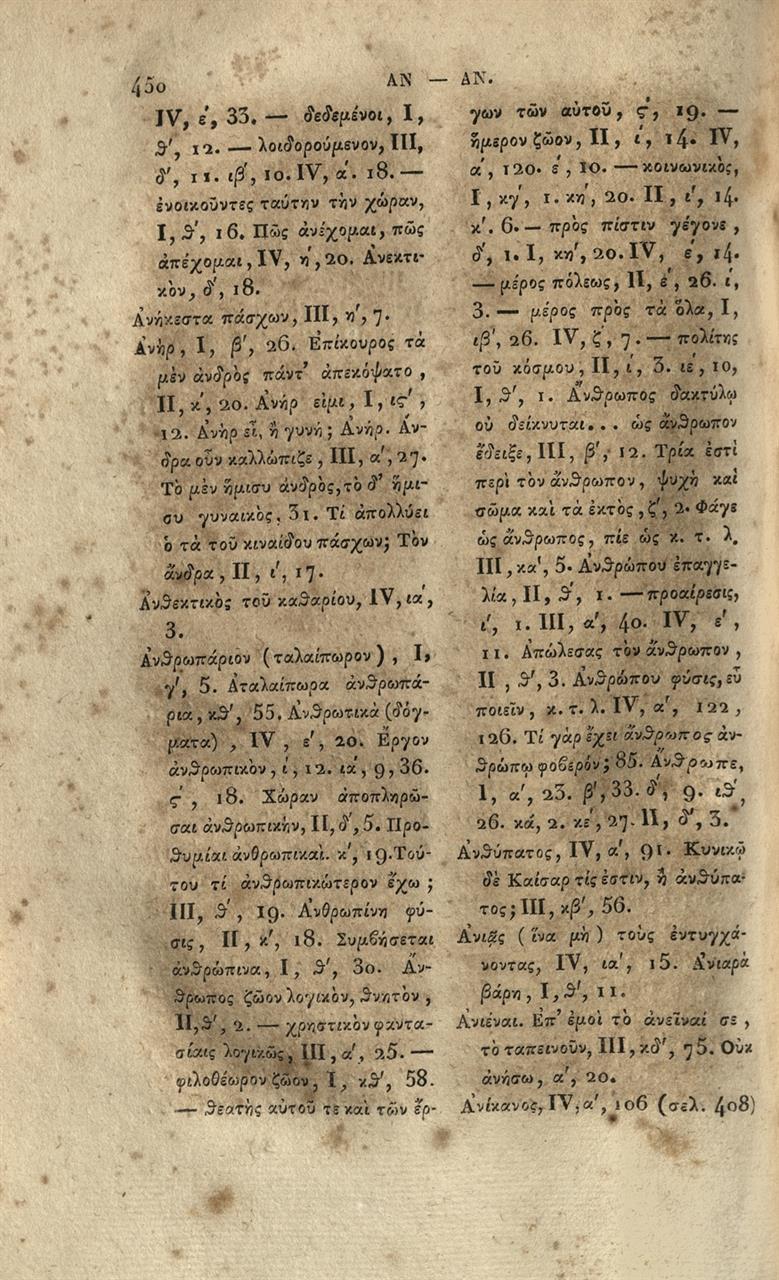 450
ΑΝ — ΑΝ.
IV, ε', 33. — δεδεμένοι, I,
ϑ', 12. — λοιδορούμενον, III,
δ', 11. ιβ', 10. IV, α'. 18. —
ἐνοικοῦντες ταύτην τὴν χώραν,
I, ϑ', 16. Πῶς ἀνέχομαι, πῶς
ἀπέχομαι, IV, η', 20. Ἀνεκτι-
κὸν, δ', 18.
Ἀνήκεστα πάσχων, III, η', 7.
Ἀνὴρ, I, β', 26. Ἐπίκουρος τὰ
μὲν ἀνδρὸς πάντ' ἀπεκόψατο,
II, κ', 20. Ἀνήρ εἰμι, I, ις',
12. Ἀνὴρ εἶ, ἢ γυνή; Ἀνήρ. Ἄν-
δρα οὖν καλλώπιζε, III, α', 27.
Τὸ μὲν ἥμισυ ἀνδρὸς, τὸ δ' ἥμι-
συ γυναικὸς, 31. Τί ἀπολλύει
ὁ τὰ τοῦ κιναίδου πάσχων; Τὸν
ἄνδρα, II, ι', 17.
Ἀνϑεκτικὸς τοῦ καϑαρίου, IV, ια',
3.
Ἀνϑρωπάριον (ταλαίπωρον), I,
γ', 5. Ἀταλαίπωρα ἀνϑρωπά-
ρια, κϑ', 55. Ἀνϑρωτικὰ (δόγ-
ματα), IV, ε', 20. Ἔργον
ἀνϑρωπικὸν, ι', 12. ια', 9, 36.
ς', 18. Χώραν ἀποπληρῶ-
σαι ἀνϑρωπικὴν, II, δ', 5. Προ-
ϑυμίαι ἀνθρωπικαί. κ', 19. Τού-
του τί ἀνϑρωπικώτερον ἔχω;
III, ϑ', 19. Ἀνθρωπίνη φύ-
σις, II, κ', 18. Συμβήσεται
ἀνϑρώπινα, I, ϑ', 30. Ἄν-
ϑρωπος ζῶον λογικὸν, ϑνητὸν,
II, ϑ', 2. — χρηστικὸν φαντα-
σίαις λογικῶς, III, α', 25. —
φιλοθέωρον ζῶον, I, κϑ', 58.
— ϑεατὴς αὑτοῦ τε καὶ τῶν ἔρ-
γων τῶν αὑτοῦ, ς', 19. —
ἥμερον ζῶον, II, ι', 14. IV,
α', 120. ε', 10. — κοινωνικὸς,
I, κγ', 1. κη', 20. II, ι', 14.
κ'. 6. — πρὸς πίστιν γέγονε,
δ', 1. I, κη', 20. IV, ε', 14.
— μέρος πόλεως, II, ε', 26. ι',
3. — μέρος πρὸς τὰ ὅλα, I,
ιβ', 26. IV, ζ', 7. — πολίτης
τοῦ κόσμου, II, ι', 3. ιε', 10,
I, ϑ', 1. Ἄνϑρωπος δακτύλῳ
οὐ δείκνυται... ὡς ἄνϑρωπον
ἔδειξε, III, β', 12. Τρία ἐστὶ
περὶ τὸν ἄνϑρωπον, ψυχὴ καὶ
σῶμα καὶ τὰ ἐκτὸς, ζ', 2. Φάγε
ὡς ἄνϑρωπος, πίε ὡς κ. τ. λ.
III, κα', 5. Ἀνϑρώπου ἐπαγγε-
λία, II, ϑ', 1. — προαίρεσις,
ι', 1. III, α', 40. IV, ε',
11. Ἀπώλεσας τὸν ἄνϑρωπον,
II, ϑ', 3. Ἀνϑρώπου φύσις, εὖ
ποιεῖν, κ. τ. λ. IV, α', 122,
126. Τί γὰρ ἔχει ἄνϑρωπος ἀν-
ϑρώπῳ φοβερόν; 85. Ἄνϑρωπε,
I, α', 23. β', 33. δ', 9. ιϑ',
26. κά, 2. κε', 27. II, δ', 3.
Ἀνϑύπατος, IV, α', 91. Κυνικῷ
δὲ Καίσαρ τίς ἐστιν, ἢ ἀνϑύπα-
τος; III, κβ', 56.
Ἀνιᾷς (ἵνα μὴ) τοὺς ἐντυγχά-
νοντας, IV, ια', 15. Ἀνιαρὰ
βάρη, I, ϑ', 11.
Ἀνιέναι. Ἐπ' ἐμοὶ τὸ ἀνεῖναί σε,
τὸ ταπεινοῦν, III, κδ', 75. Οὐκ
ἀνήσω, α', 20.
Ἀνίκανος, IV, α', 106 (σελ. 408)